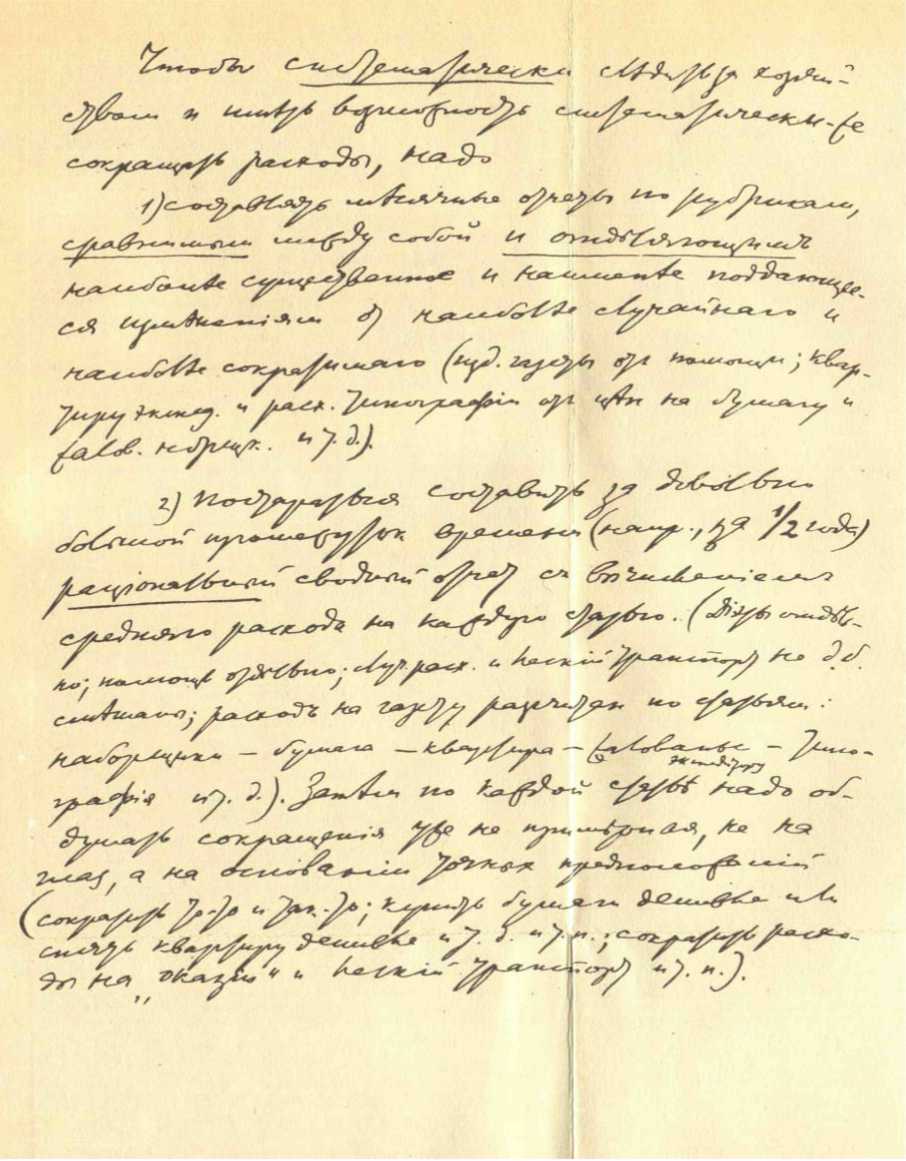 Чтобы систематически следить за хозяй-
ством и иметь возможность систематически-же
сокращать расходы, надо
1) составлять месячные отчеты по рубрикам,
сравнимым между собой и отделяющимъ
наиболѣе существенное и наименѣе поддающее-
ся измѣненiям от наиболѣе случайнаго и
наиболѣе сократимаго (изд. газеты от помощи; квар-
тиру экспед. и расх. типографiи от цѣн на бумагу и
жалов. наборщик. и т. д.).
2) Постараться составить за довольно
большой промежуток времени (напр., за 1/2 года)
рацiональный сводный отчет съ вычисленiемъ
средняго расхода на каждую статью. (Дiэты отдѣль-
но; помощь отдѣльно; случ. расх. и ческiй транспорт не д. б.
смѣшаны; расходъ на газету расчитан по статьям:
наборщики — бумага — квартира — жалованье — типо-
экспедитору
графiя и т. д.). Затѣм по каждой статьѣ надо об-
думать сокращенiя уже не примѣрныя, не на
глаз, а на основанiи точных предположенiй
(сократить то-то и так-то; купить бумаги дешевле или
снять квартиру дешевле и т. д. и т. п.; сократить расхо-
ды на „оказiи“ и ческiй транспорт и т. п.).